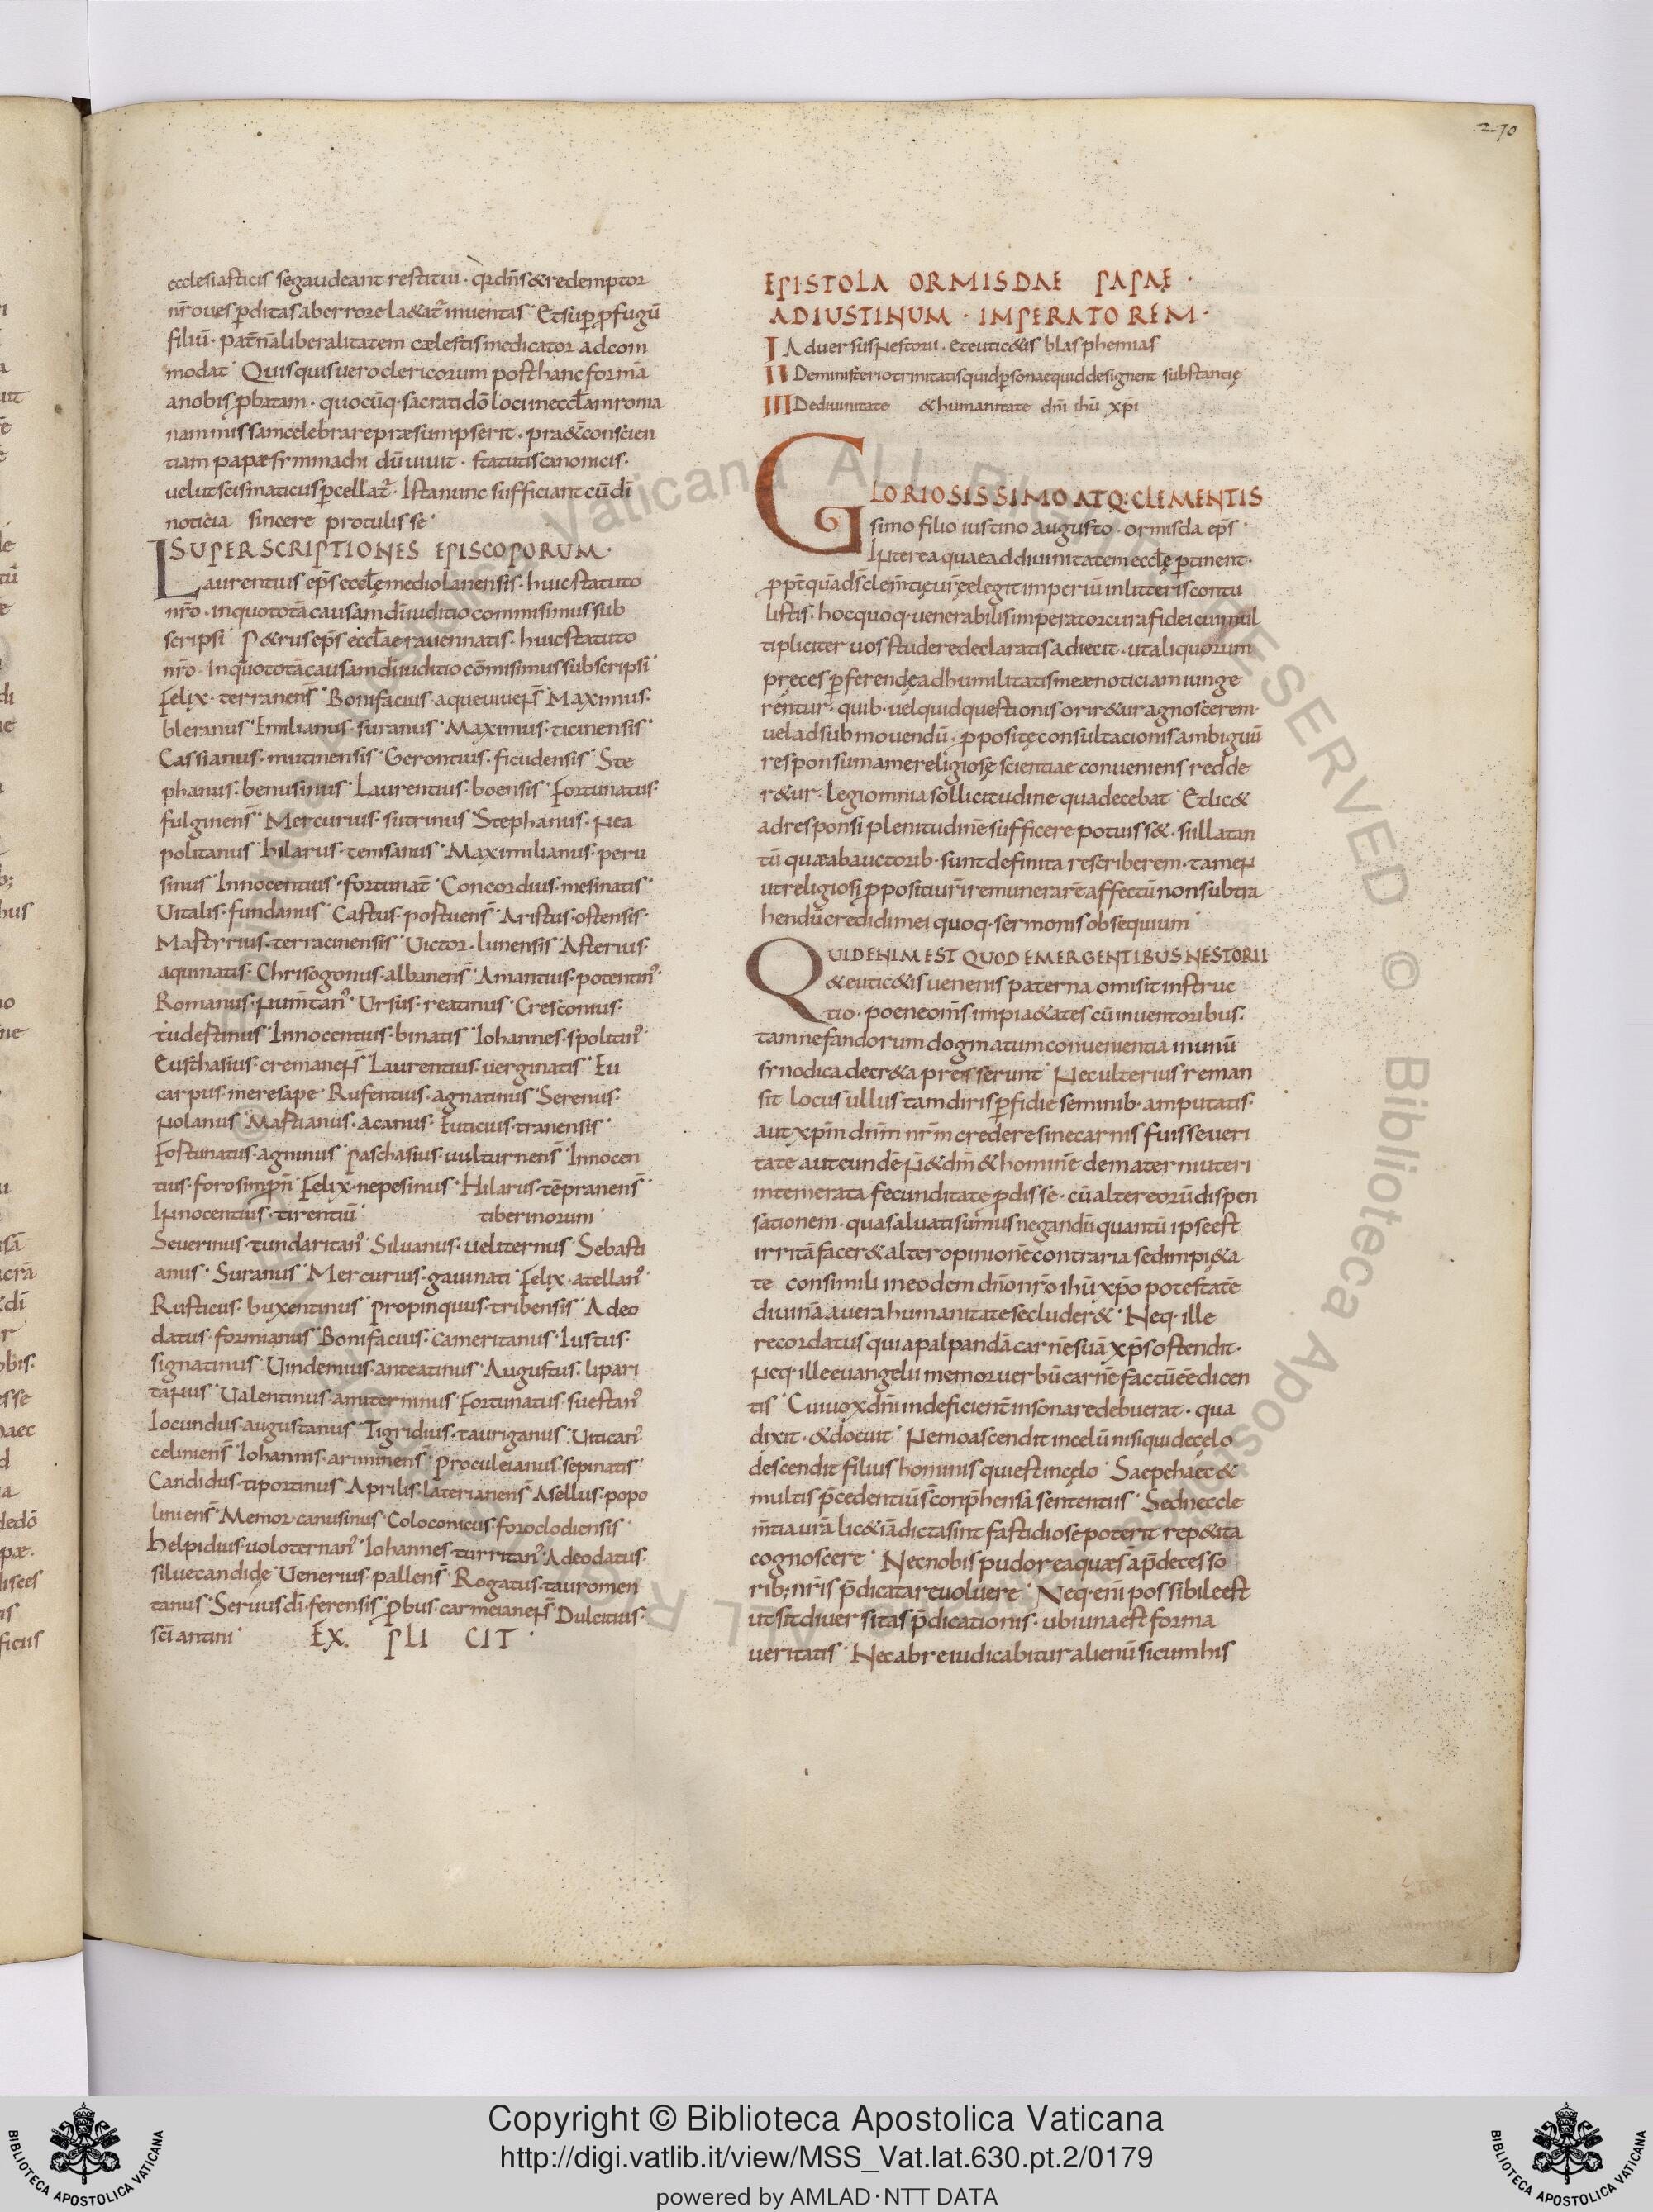 270
ecclesiasticis segaudeant restitui · qr dn̄s & redemptor
nr̄ oues ꝑditas ab errore laetat᷑ inuentas · Et sup ꝓfugū
filiū · pat̄nā liberalitatem cælestis medicator adcom
modat · Quisquis uero clericorum post hanc formā
a nobis ꝓbatam · quocūq · sacrati dō loci inecclam roma
nam missam celebrare præsumpserit · præ& conscien
tiam papæ symmachi dū uiuit · statutis canonicis ·
uelut scismaticus ꝑcellat᷑ · Ista nunc sufficiant cū dī
noticia sincere protulisse ·
SUPERSCRIPTIONES EPISCOPORUM ·
Laurentius ep̄s eccłę mediolanensis · huic statuto
nr̄o · in quo totā causam dī iuditio commisimus sub
scripsi · P&rus ep̄s eccłae rauennatis · huic statuto
nr̄o · in quo totā causam dī iuditio cōmisimus subscripsi ·
Felix · terranens̄ · Bonifacius · aqueuiuens̄ · Maximus ·
bleranus · Emilianus · suranus · Maximus · ticinensis ·
Cassianus · mutinensis · Gerontius · ficudensis · Ste
phanus · benusinus · Laurentius · boensis · Fortunatus ·
fulginens̄ · Mercurius · sutrinus · Stephanus · nea
politanus · hilarus · temsanus · Maximilianus · peru
sinus · Innocentius · fortunat̄ · Concordius · mesinatis ·
Uitalis · fundanus · Castus · postuens̄ · Aristus · ostensis ·
Mastyrius · terracinensis · Uictor · lunensis · Asterius ·
aquinatis · Chrisogonus · albanens̄ · Amantius · potentin᷒ ·
Romanus · numtan᷒ · Ursus · reatinus · Cresconius ·
tudestinus · Innocentius · binatis · Iohannes · spolitin᷒ ·
Eusthasius · cremanens̄ · Laurentius · uerginatis · Eu
carpus · meresape · Rufentius · agnatinus · Serenus ·
nolanus · Mastianus · acanus · Euticius · tranensis ·
Fostunatus · agninus · paschasius · uulturnens̄ · Innocen
tius · forosimpn̄ · Felix · nepesinus · Hilarus · tēpranens̄ ·
Innocentius · tirentiū · tiberinorum ·
Seuerinus · tundaritan᷒ · Siluanus · ueliternus · Sebasti
anus · Suranus · Mercurius · gauinati · Felix · atellan᷒ ·
Rusticus · buxentinus · propinquus · tribensis · Adeo
datus · formianus · Bonifacius · cameritanus · Iustus ·
signatinus · Uindemius · anteatinus · Augustus · lipari
tanus · Ualentinus · amiterninus · Fortunatus · suestan᷒
Iocundus · augustanus · Tigridius · tauriganus · Uitican᷒ ·
celiniens̄ · Iohannis · ariminens̄ · proculeianus · sepinatis ·
Candidus · tiportinus · Aprilis · laterianens̄ · Asellus · popo
liniens̄ · Memor · canusinus · Coloconicus · foroclodiensis ·
helpidius · uoloternan᷒ · Iohannes · turritan᷒ · Adeodatus ·
siluecandidę · Uenerius · pallens̄ · Rogatus · tauromen
tanus · Seruus dī · ferensis · ꝓbus · carmeianens̄ · Dulcitius ·
sc̄i antini · EX PLI CIT ·
EPISTOLA ORMISDAE PAPAE ·
AD IUSTINUM · IMPERATOREM ·
I Aduersus Nestorii · et eutic&is blasphemias
II De ministerio trinitatis quid ꝑsonae quid designent substantię
III De diuinitate & humanitate dn̄i ihū xp̄i
GLORIOSISSIMO ATQ: CLEMENTIS
simo filio iustino augusto · ormisda ep̄s ·
Interea quae ad diuinitatem eccłę ꝑtinent ·
ꝓpt̄ quā ds̄ clem̄tię ur̄ę elegit imperiū in litteris contu
listis · hoc quoq · uenerabilis imperator cura fidei cui mul
tipliciter uos studere declaratis adiecit · ut aliquorum
pręces ꝑferendę ad humilitatis meæ noticiam iunge
rentur · quib · uel quid questionis orir&ur agnoscerem ·
uel ad submouendū · ꝓpositę consultacionis ambiguū
responsum a me religiosę scientiae conueniens redde
r&ur · legi omnia sollicitudine qua decebat · Et lic&
ad responsi plenitudinē sufficere potuiss& · si illa tan
tū quæ ab auctorib · sunt definita rescriberem · tamen
ut religiosi ꝓpositi ur̄i remunerarē affectū non subtra
hendū credidi mei quoq · sermonis obsequium ·
QUID ENIM EST QUOD EMERGENTIBUS NESTORII
& eutic&is uenenis paterna omisit instruc
tio · poene om̄s impi&ates cū inuentoribus ·
tam nefandorum dogmatum conuenientia in unū
synodica decr&a presserunt · Nec ulterius reman
sit locus ullus tam diris ꝑfidie seminib · amputatis ·
aut xp̄m dnm̄ nr̄m credere sine carnis fuisse ueri
tate aut eundē n̄ & dm̄ & hominē de mater ni uteri
intemerata fecunditate ꝓdisse · cū alter eorū dispen
sationem · qua saluati sumus negandū quantū ipse est
irritā facer& alter opinionē contraria sed impi&a
te consimili in eodem dn̄o nr̄o ihū xp̄o potestatē
diuinā a uera humanitate secluder& · Neq · ille
recordatus quia palpandā carnē suā xp̄s ostendit ·
neq · ille euangelii memor uerbū carnē factū eē dicen
tis · Cui uox dn̄i indeficient̄ insonare debuerat · qua
dixit · & docuit · Nemo ascendit in celū nisi qui de cęlo
descendit filius hominis qui est in cęlo · Saepe haec &
multis p̄cedentiū st̄ conp̄hensa sententiis · Sed nec cle
m̄tia ur̄a lic& iā dicta sint fastidiose poterit rep&ita
cognoscere · Nec nobis pudor ea quæ s̄ a p̄decesso
rib; nr̄is p̄dicata reuoluere · Neq · eni possibile est
ut sit diuersitas p̄dicationis · ubi una est forma
ueritatis · Nec ab re iudicabitur alienū si cum his
Copyright © Biblioteca Apostolica Vaticana
http://digi.vatlib.it/view/MSS_Vat.lat.630.pt.2/0179
powered by AMLAD·NTT DATA
BIBLIOTECA APOSTOLICA VATICANA
BIBLIOTECA APOSTOLICA VATICANA